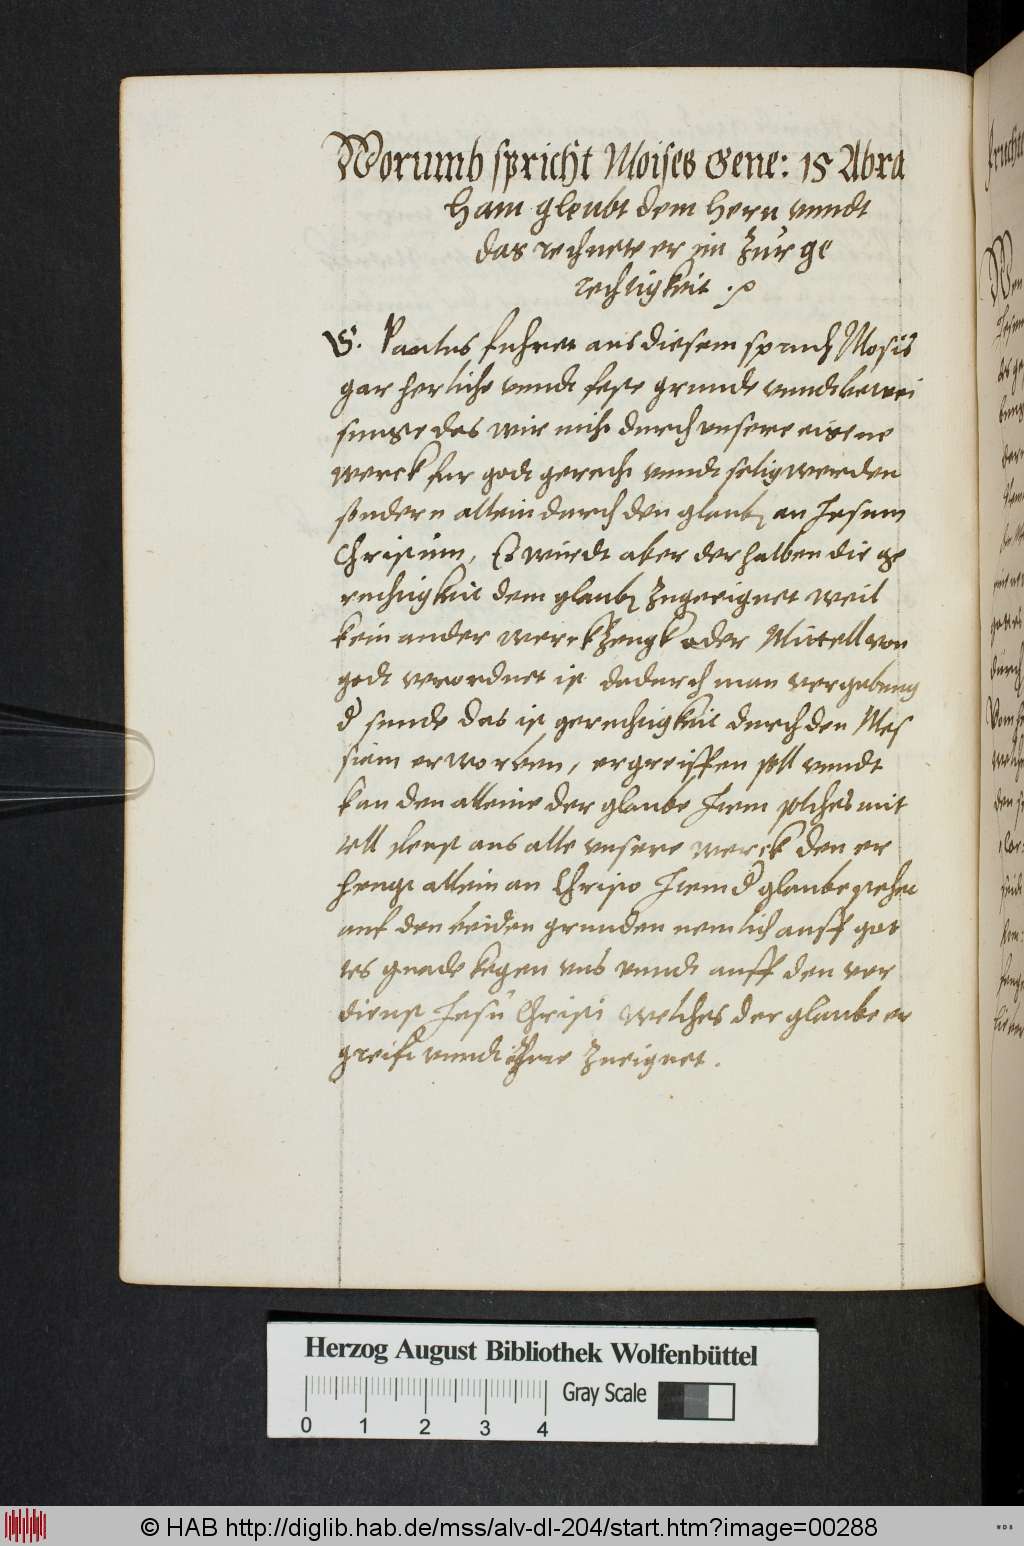 Worumb spricht Moises Gene: 15 Abra
ham gleubt dem hern vnndt
das rechnete er im zur ge
rechtigkeit
S. Paulus fuhret aus diesem spruch Mosis
gar herliche vnndt feste grunde vnndt bewei
sunge das wir nicht durch vnsere eigene
werck fur godt gerecht vnndt selig werden
sondern allein durch den glaub an Jesum
Christum, Es wirdt aber derhalben die ge
rechtigkeit dem glaub zugeeignet weil
kein ander werckzeugk oder Mittell von
godt verordnet ist dadurch man vergebung
d sunde das ist gerechtigkeit durch den Mes
siam erworben, ergreiffen soll vnndt
kan den alleine der glaube Item solches mit
tell sleust aus alle vnsere werck den er
hengt allein an Christo Item d glaube stehet
auf den beiden grunden nemlich auff got
tes gnade kegen vns vnndt auff den ver
dienst Jesu Christi welches der glaube er
greift vnndt ihme zueignet.
Herzog August Bibliothek Wolfenbüttel
0 1 2 3 4
Gray Scale
© HAB http://diglib.hab.de/mss/alv-dl-204/start.htm?image=00288